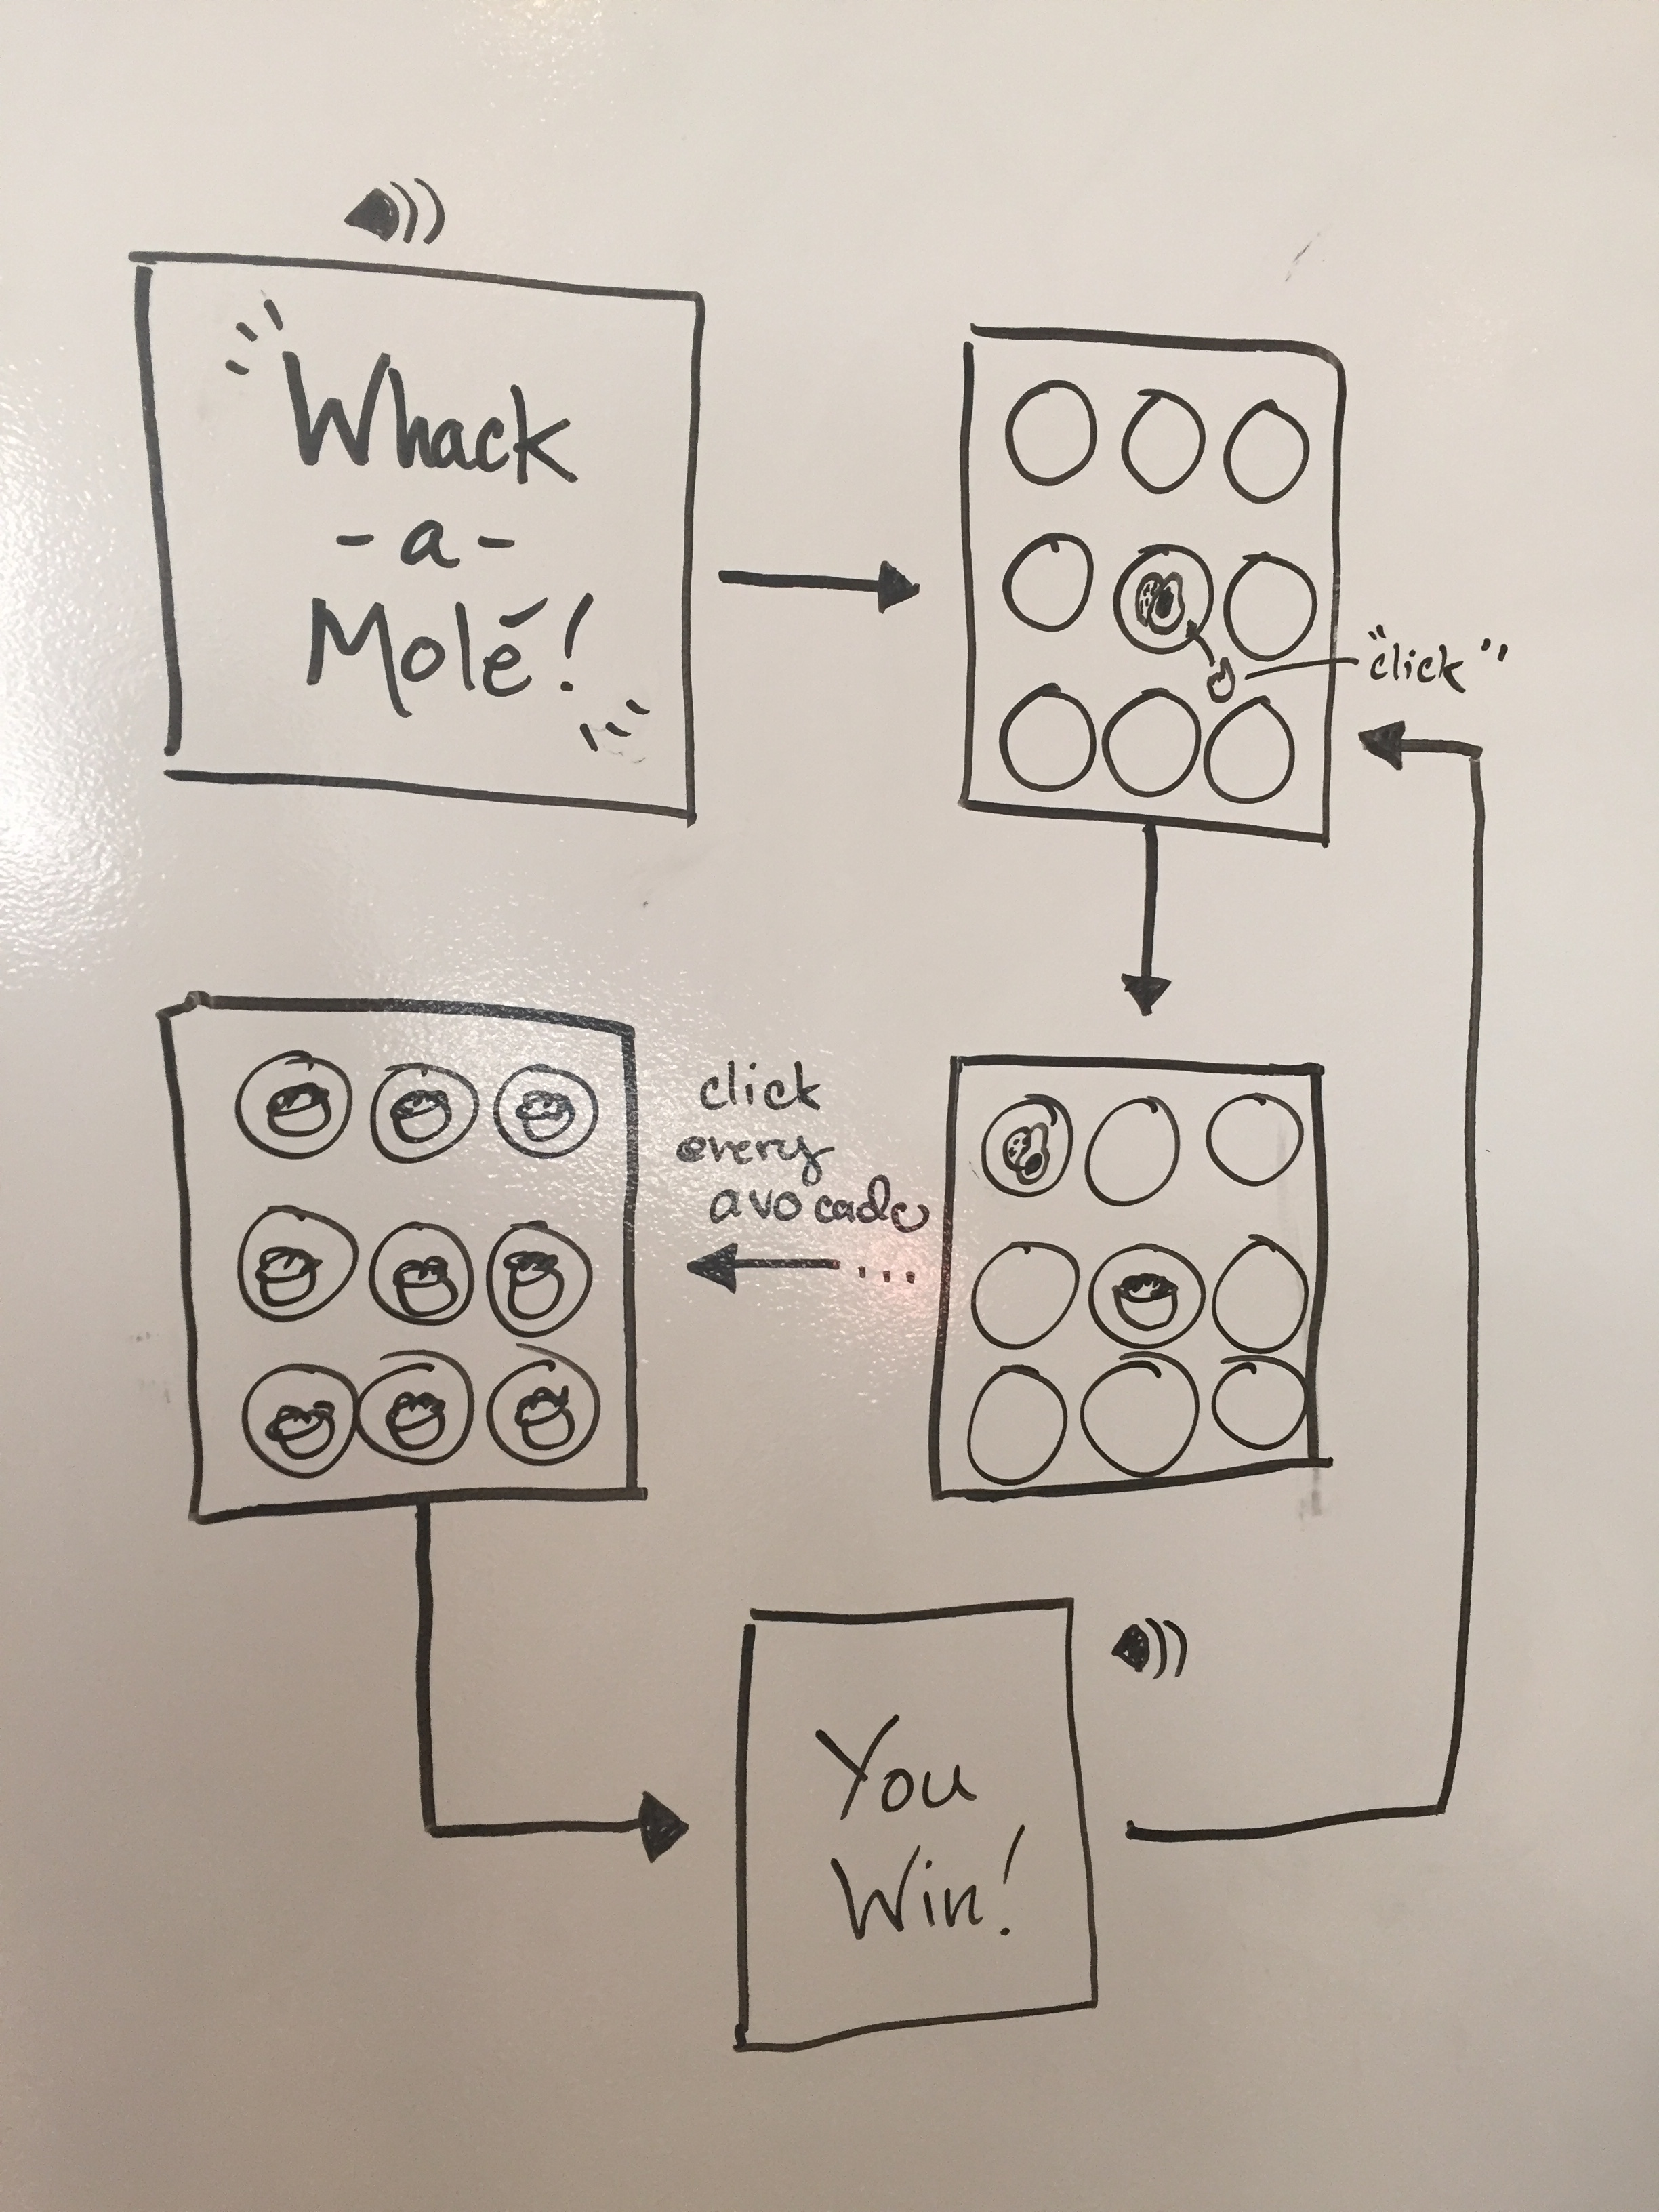 Whack
-a-
Molé!
"click"
click
every
avocado
...
You
Win!